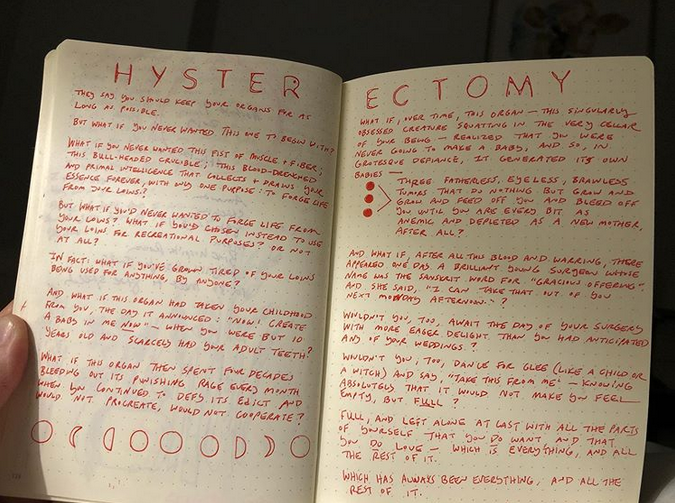 HYSTER
THEY SAY YOU SHOULD KEEP YOUR ORGANS FOR AS
LONG AS POSSIBLE.
BUT WHAT IF YOU NEVER WANTED THIS ONE TO BEGIN WITH?
WHAT IF YOU NEVER WANTED THIS FIST OF MUSCLE & FIBER;
THIS BULL-HEADED CRUCIBLE; THIS BLOOD-DRENCHED
AND PRIMAL INTELLIGENCE THAT COLLECTS & DRAWS YOUR
ESSENCE FOREVER, WITH ONLY ONE PURPOSE: TO FORGE LIFE
FROM YOUR LOINS?
BUT WHAT IF YOU'D NEVER WANTED TO FORGE LIFE FROM
YOUR LOINS? WHAT IF YOU'D CHOSEN INSTEAD TO USE
YOUR LOINS FOR RECREATIONAL PURPOSES? OR NOT
AT ALL?
IN FACT: WHAT IF YOU'VE GROWN TIRED OF YOUR LOINS
BEING USED FOR ANYTHING, BY ANYONE?
AND WHAT IF THIS ORGAN HAD TAKEN YOUR CHILDHOOD
FROM YOU, THE DAY IT ANNOUNCED: "NOW! CREATE
A BABY IN ME NOW" — WHEN YOU WERE BUT 10
YEARS OLD AND SCARCELY HAD YOUR ADULT TEETH?
WHAT IF THIS ORGAN THEN SPENT FOUR DECADES
BLEEDING OUT ITS PUNISHING RAGE EVERY MONTH
WHEN YOU CONTINUED TO DEFY ITS EDICT AND
WOULD NOT PROCREATE, WOULD NOT COOPERATE?
ECTOMY
WHAT IF, OVER TIME, THIS ORGAN — THIS SINGULARLY
OBSESSED CREATURE SQUATTING IN THE VERY CELLAR
OF YOUR BEING — REALIZED THAT YOU WERE
NEVER GOING TO MAKE A BABY, AND SO, IN
GROTESQUE DEFIANCE, IT GENERATED ITS OWN
BABIES —
THREE FATHERLESS, EYELESS, BRAWLESS
TUMORS THAT DO NOTHING BUT GROW AND
GROW AND FEED OFF YOU AND BLEED OFF
YOU UNTIL YOU ARE EVERY BIT AS
ANEMIC AND DEPLETED AS A NEW MOTHER,
AFTER ALL?
AND WHAT IF, AFTER ALL THIS BLOOD AND WARRING, THERE
APPEARED ONE DAY A BRILLIANT YOUNG SURGEON WHOSE
NAME WAS THE SANSKRIT WORD FOR "GRACIOUS OFFERING".
AND SHE SAID, "I CAN TAKE THAT OUT OF YOU
NEXT MONDAY AFTERNOON."?
WOULDN'T YOU, TOO, AWAIT THE DAY OF YOUR SURGERY
WITH MORE EAGER DELIGHT THAN YOU HAD ANTICIPATED
ANY OF YOUR WEDDINGS?
WOULDN'T YOU, TOO, DANCE FOR GLEE (LIKE A CHILD OR
A WITCH) AND SAY, "TAKE THIS FROM ME" — KNOWING
ABSOLUTELY THAT IT WOULD NOT MAKE YOU FEEL
EMPTY, BUT FULL?
FULL, AND LEFT ALONE AT LAST WITH ALL THE PARTS
OF YOURSELF THAT YOU DO WANT, AND THAT
YOU DO LOVE — WHICH IS EVERYTHING, AND ALL
THE REST OF IT.
WHICH HAS ALWAYS BEEN EVERYTHING, AND ALL THE
REST OF IT.